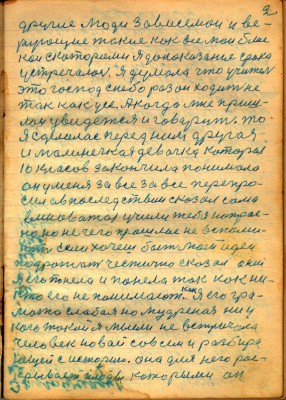 2
другие люди зависемои и ве-
рующие такие как все мои близ
кои скоторыми я до показание срока
устречалас. Я думала что учител
это господ снебо разон ходит не
так как усе. А когда мне приш-
лас увидется и говорит. то
я сделилас перед ним другая
и малинчкая девочка которая
10 класов закончила понимала
он уменя за все за все перепро-
сил а впоследствии сказал сама
виноватая учили тебя напрас-
но но не чего прошлае не вспоми-
най если хочеш быт моей идеи
подражат честно сказал
Я его поняла и поняла так как ни-
кто его не понимают. Я его гра-
мота слабая но мудреная ни у
кого такой я мысли не встричала
человек новай совсем и разбира
ющей с историю. она для него рас-
крывает людеи которыми он